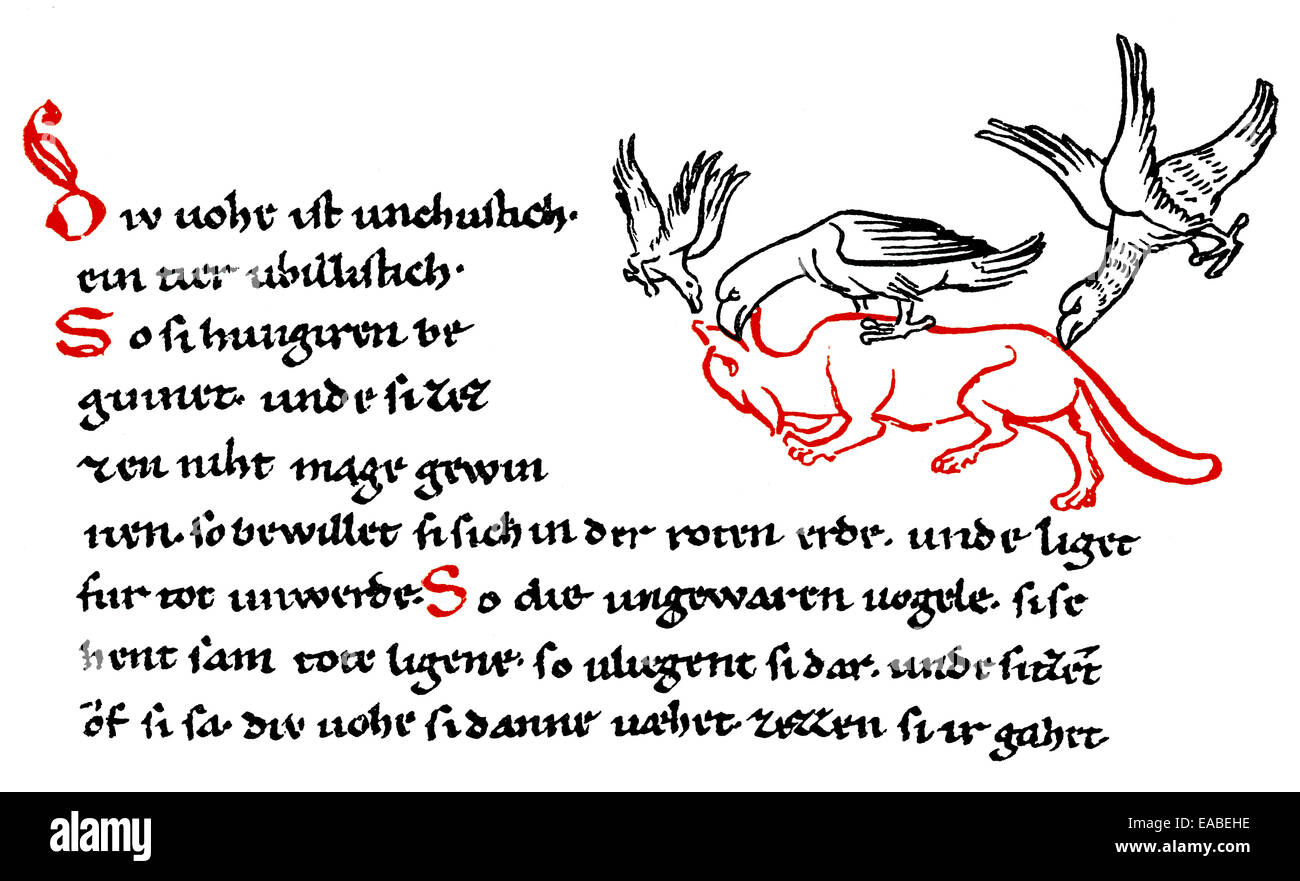 Diw uohe ist unchustich.
ein tier ubillistich.
So si hungiren be
ginnet. unde si zez
zen niht mage gewin
nen. so bewillet si sich in der roten erde. unde liget
fur tot unwerde. So die ungewaren uogele. si se
hent sam tote ligene. so uliegent si dar. unde sitzēt
öf si sa. die uohe si danne uæhet. zezzen si ir gahet.
alamy
Image ID: EABEHE
www.alamy.com